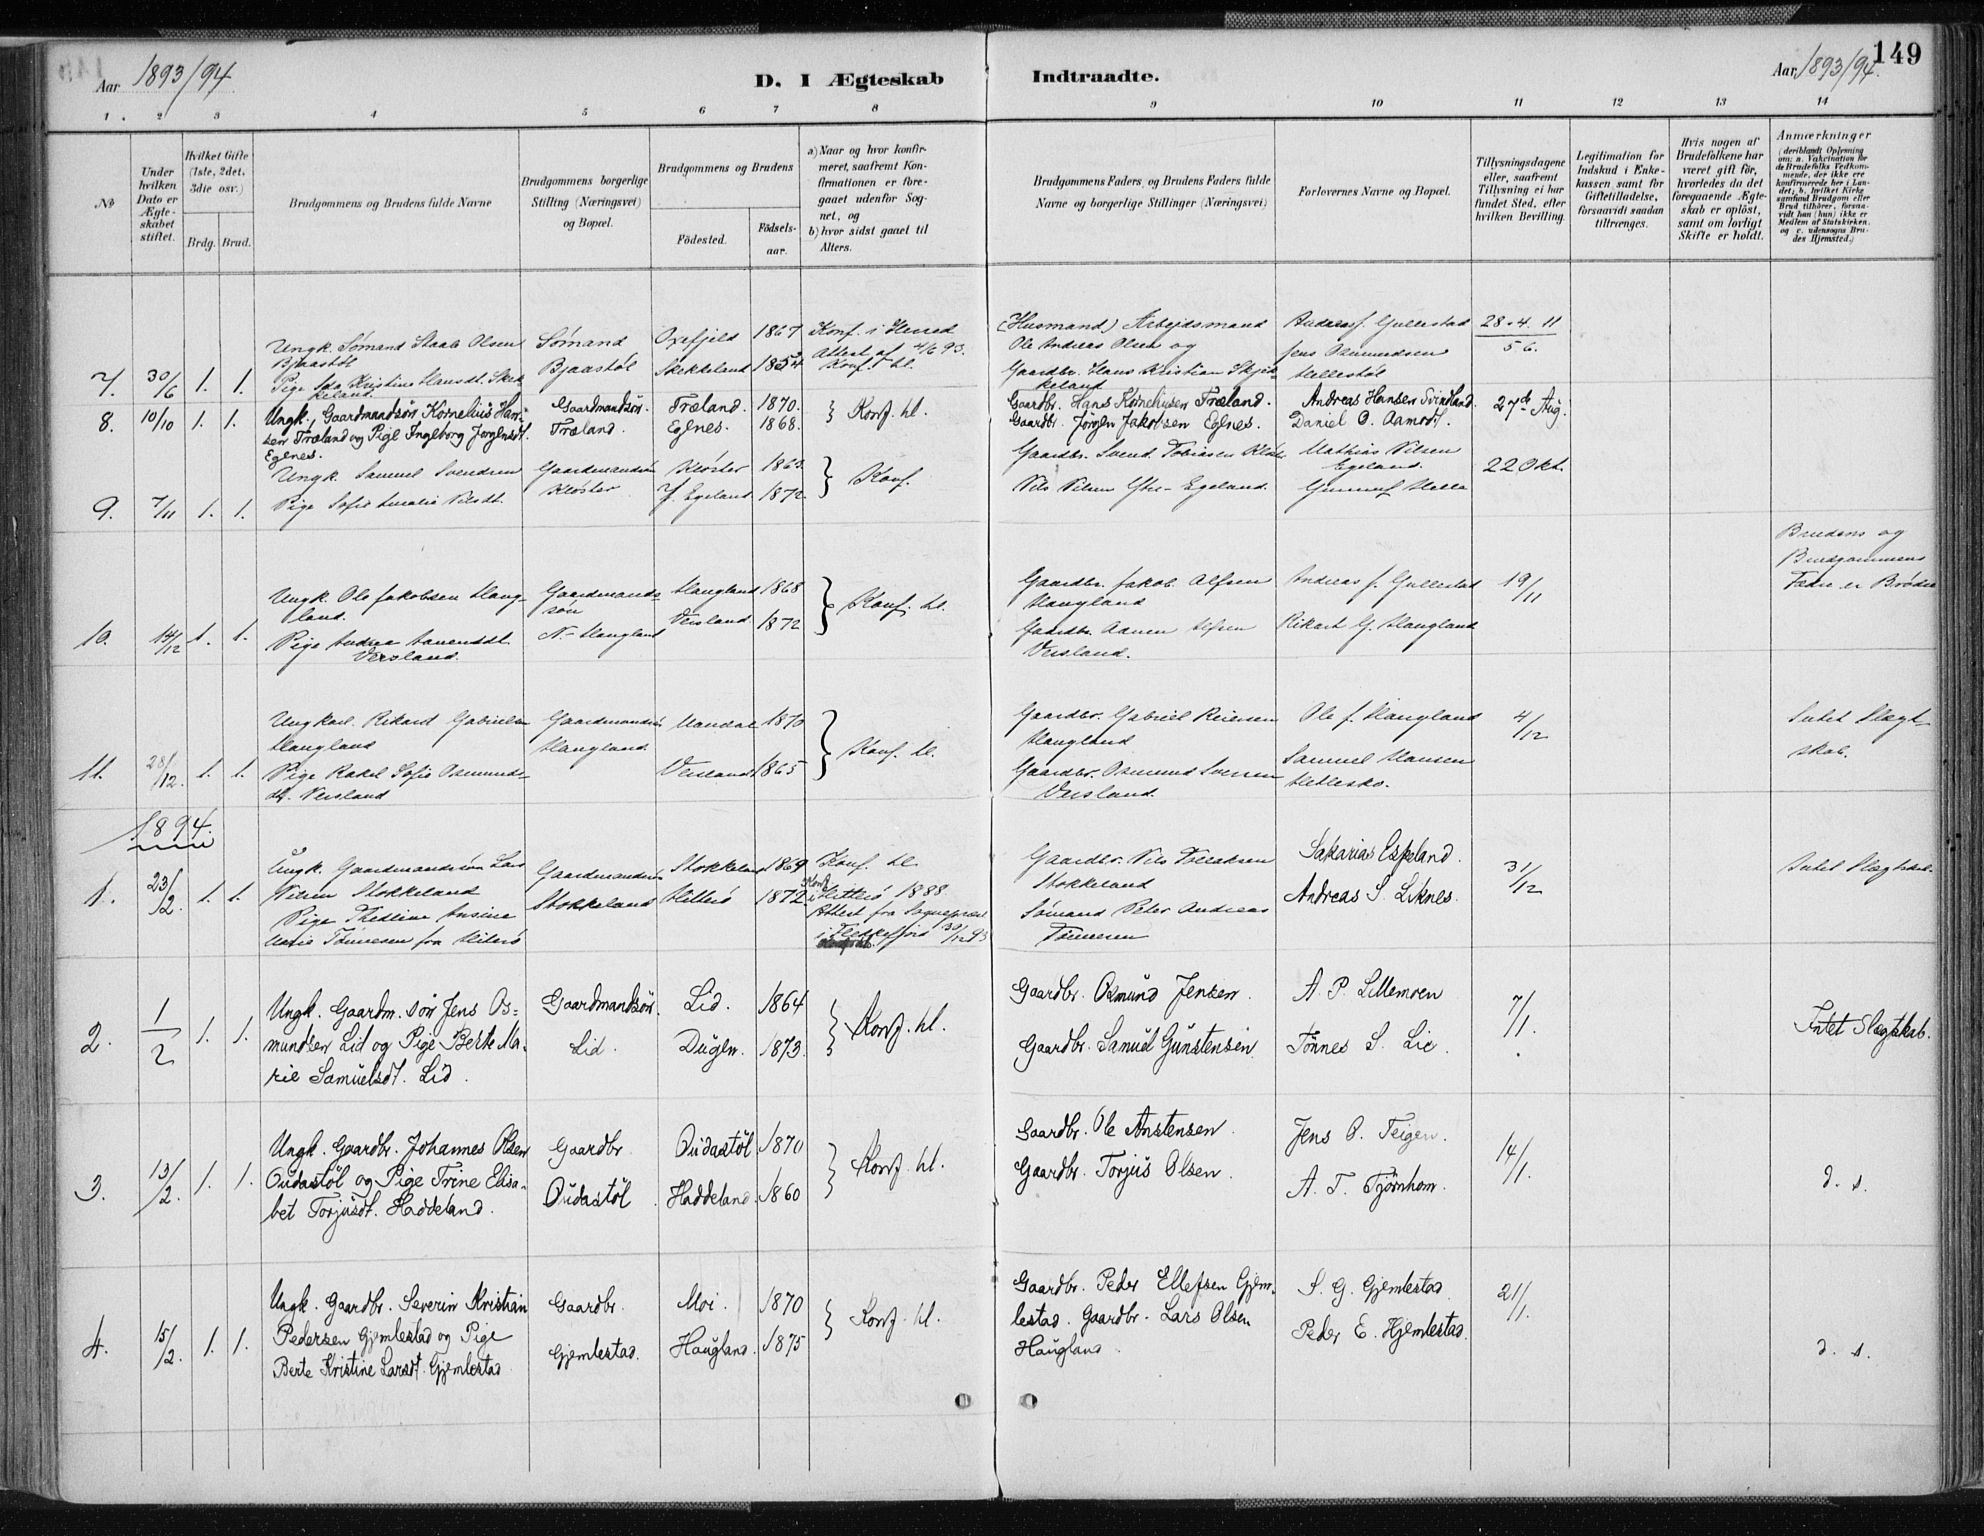 149
Aar 1893/94
D. I Ægteskab Indtraadte.
Aar 1893/94.
1. 2 3 4 5 6 7 8 9 10 11 12 13 14
№
Under hvilken Dato er Ægteskabet stiftet.
Hvilket Gifte (1ste, 2det, 3die osv.)
Brdg. Brud.
Brudgommens og Brudens fulde Navne
Brudgommens borgerlige Stilling (Næringsvei) og Bopæl.
Brudgommens og Brudens
Födested.
Födselsaar.
a) Naar og hvor konfirmeret, saafremt Konfirmationen er foregaaet udenfor Sognet, og
b) hvor sidst gaaet til Alters.
Brudgommens Faders og Brudens Faders fulde Navne og borgerlige Stillinger (Næringsvei)
Forlovernes Navne og Bopæl.
Tillysningsdagene eller, saafremt Tillysning ei har fundet Sted, efter hvilken Bevilling.
Legitimation for Indskud i Enkekassen samt for Giftetilladelse, forsaavidt saadan tiltrænges.
Hvis nogen af Brudefolkene har været gift för, hvorledes da det foregaaende Ægteskab er oplöst, samt om lovligt Skifte er holdt.
Anmærkninger (deriblandt Oplysning om: a. Vakcination for de Brudefolks Vedkommende, der ikke ere konfirmerede her i Landet; b. hvilket Kirkesamfund Brudgom eller Brud tilhører, forsaavidt han (hun) ikke er Medlem af Statskirken, og c. udensogns Brudes Hjemsted.)
7. 30/6 1. 1.
Ungk. Sømand Olsen
Bjaastøl
Pige Ida Kristine Hansdt. Skekkeland.
Sømand
Bjaastøl
Oxefjeld 1867
Skekkeland
Konf. i Herred
Attest af 4/6 93.
Konf. hl.
(Husmand) Arbejdsmand
Ole Andreas Olsen og
Gaardbr. Hans Kristian
Andreas J. Gullestad
Jens Osmundsen
28. 4. 11
5 6.
8. 10/10 1. 1.
Ungk., Gaardmandsøn Kornelius Hansen Træland og Pige Ingeborg Jørgensdt. Egenes.
Gaardmandsøn.
Træland.
Træland. 1870.
Egenes. 1868.
Konf. hl.
Gaardbr. Hans Kornelius[en] Træland.
Gaardbr. Jørgen Jakobsen Egenes.
Andreas Hansen Svindland.
Daniel O. Aamodt.
27de Aug.
9. 7/11 1. 1.
Ungk. Samuel Svendsen
Pige Sofie Amalie Nilsdt.
Gaardmandsøn
Kløster
Kløster
Y. Egeland 1872.
Konf.
Gaardbr. Svend Tobiasen
Nils Nilsen Ytre-Egeland.
Mathias Nilsen
Egeland.
22 Okt.
10. 14/12 1. 1.
Ungk. Ole Jakobsen Haugland.
Pige Andrea Aanensdt.
Versland.
Gaardmandssøn
N.-Haugland
Haugland 1868
Versland 1872
Konf. hl.
Gaardbr. Jakob Alfsen
Haugland
Gaardbr. Aanen Alfsen
Versland.
Andreas J. Gullestad
Rikart G. Haugland
19/11
Brudens og
Brudgommens
Fædre er Brødre
11. 28/12. 1. 1.
Ungkarl. Rikard Gabrielsen
Haugland
Pige Rakel Sofie Osmundsdt. Versland
Gaardmandsøn
Haugland.
Mandal 1870
Versland 1865
Konf. hl.
Gaardbr. Gabriel Reiersen
Haugland
Gaardbr. Osmund
Versland.
Ole J. Haugland
Samuel Hansen
4/12
Intet Slægtskab.
1894.
1. 23/2. 1. 1.
Ungk. Gaardmandsøn Lars
Nilsen Stokkeland
Pige
Marie Tønnesen fra Hitterø
Gaardmandsøn
Stokkeland
Stokkeland 1869
Hitterø 1872
Konf. hl.
Konf. i Hitterø 1888.
Attest fra Sognepræst
i Flekkefjord 30/12 93
Gaardbr. Nils
Stokkeland
Sømand Peter Andreas
Tønnesen
Sakarias Espeland.
Andreas S. Liknes.
31/12
Intet Slægtskab.
2. 1/2 1. 1.
Ungk. Gaardm. søn Jens Osmundsen Lid og Pige Berte Marie Samuelsdt. Lid.
Gaardmandsøn.
Lid.
Lid. 1864
Dugen. 1873.
Konf. hl.
Gaardbr. Osmund Jensen.
Gaardbr. Samuel Gunstensen
A. P. Lillemoen
Tønnes S. Lie.
7/1.
Intet Slægtskab.
3. 13/2. 1. 1.
Ungk. Gaardbr. Johannes Olsen
Oudastøl og Pige Trine Elisabet Torjusdt. Haddeland.
Gaardbr.
Oudastøl
Oudastøl 1870
Haddeland 1860
Konf. hl.
Gaardbr. Ole Anstensen.
Gaardbr. Torjus Olsen.
Jens O. Teigen.
A. T. Tjørnhom.
14/1.
d. s.
4. 15/2. 1. 1.
Ungk. Gaardbr. Severin Kristian
Pedersen Gjemlestad og Pige
Berte Kristine Larsdt. Gjemlestad
Gaardbr.
Gjemlestad.
Moi. 1870
Haugland. 1875
Konf. hl.
Gaardbr. Peder Ellefsen Gjemlestad. Gaardbr. Lars Olsen
Haugland.
S. G. Gjemlestad
Peder E. Hjemlestad.
21/1.
d. s.